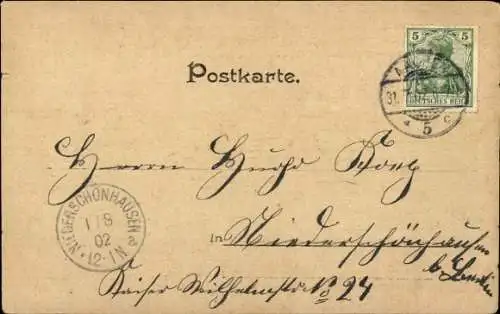 5 5
DEUTSCHES REICH
31. 7. 02
* 5 c
Postkarte.
Herrn Hugo
NIEDERSCHÖNHAUSEN
1 / 8
02
* 12-1N
a
in Niederschönhausen
b. Berlin
Kaiser Wilhelmstr No 24